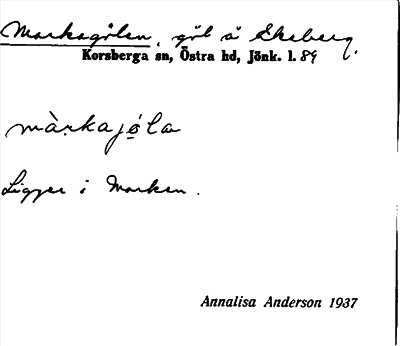 Markagölen, göl å Ekeberg.
Korsberga sn, Östra hd, Jönk. l. 89
màrkajo̱la
Ligger i Marken.
Annalisa Anderson 1937